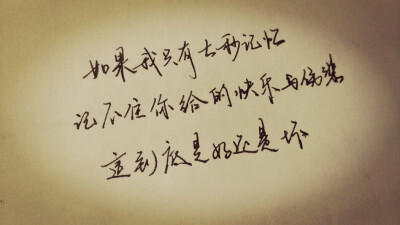 如果我只有七秒记忆
记不住你给的快乐与伤悲
这到底是好还是坏